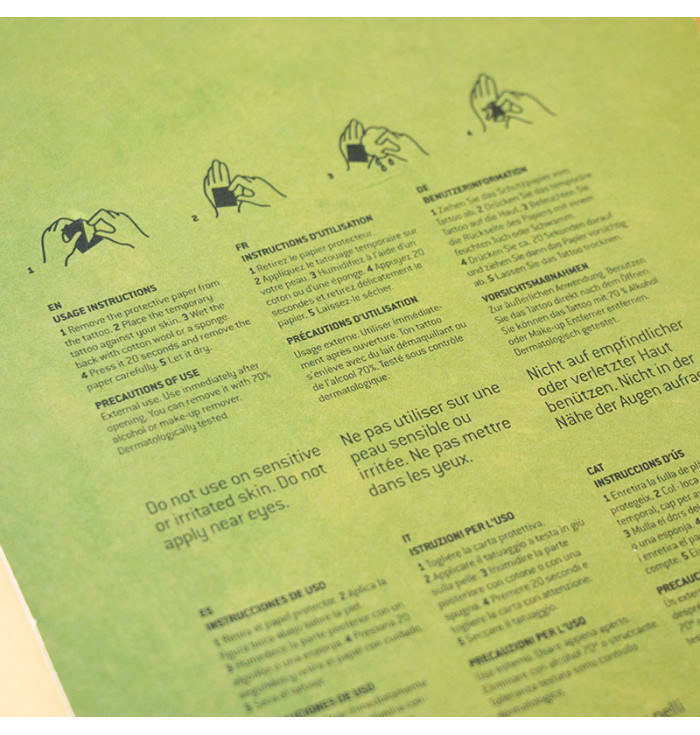 1
2
3
4
EN
USAGE INSTRUCTIONS
1 Remove the protective paper from
the tattoo. 2 Place the temporary
tattoo against your skin. 3 Wet the
back with cotton wool or a sponge.
4 Press it 20 seconds and remove the
paper carefully. 5 Let it dry.
PRECAUTIONS OF USE
External use. Use inmediately after
opening. You can remove it with 70%
alcohol or make-up remover.
Dermatologically tested
Do not use on sensitive
or irritated skin. Do not
apply near eyes.
FR
INSTRUCTIONS D'UTILISATION
1 Retirez le papier protecteur.
2 Appliquez le tatouage temporaire sur
votre peau. 3 Humidifiez à l'aide d'un
coton ou d'une éponge. 4 Appuyez 20
secondes et retirez délicatement le
papier. 5 Laissez-le sécher.
PRÉCAUTIONS D'UTILISATION
Usage externe. Utiliser immédiate-
ment après ouverture. Ton tattoo
s'enlève avec du lait démaquillant ou
de l'alcool 70%. Testé sous contrôle
dermatologique.
Ne pas utiliser sur une
peau sensible ou
irritée. Ne pas mettre
dans les yeux.
DE
BENUTZERINFORMATION
1 Ziehen Sie das Schutzpapier vom
Tattoo ab. 2 Drücken Sie das temporäre
Tattoo auf die Haut. 3 Befeuchten Sie
die Rückseite des Papiers mit einem
feuchten Tuch oder Schwamm.
4 Drücken Sie ca. 20 Sekunden darauf
und ziehen Sie dann das Papier vorsichtig
ab. 5 Lassen Sie das Tattoo trocknen.
VORSICHTSMAßNAHMEN
Zur äußerlichen Anwendung. Benutzen
Sie das Tattoo direkt nach dem Öffnen.
Sie können das Tattoo mit 70 % Alkohol
oder Make-Up Entferner entfernen.
Dermatologisch getestet.
Nicht auf empfindlicher
oder verletzter Haut
benützen. Nicht in der
Nähe der Augen
ES
INSTRUCCIONES DE USO
1 Retira el papel protector. 2 Aplica la
figura boca abajo sobre la piel.
3 Humedece la parte posterior con un
algodón o una esponja. 4 Presiona 20
segundos y retira el papel con cuidado.
IT
ISTRUZIONI PER L'USO
1 Togliere la carta protettiva.
2 Applicare il tatuaggio a testa in giù
sulla pelle. 3 Inumidire la parte
posteriore con cotone o con una
spugna. 4 Premere 20 secondi e
togliere la carta con attenzione.
5 Seccare il tatuaggio.
PRECAUZIONI PER L'USO
Uso esterno. Usare appena aperto.
Eliminare con alcohol 70° o struccante.
CAT
INSTRUCCIONS D'ÚS
1 Enretira la fulla de
protegeix. 2 Col·loca
temporal, cap per a
3 Mulla el dors del
o una esponja.
i enretira el
compte. 5